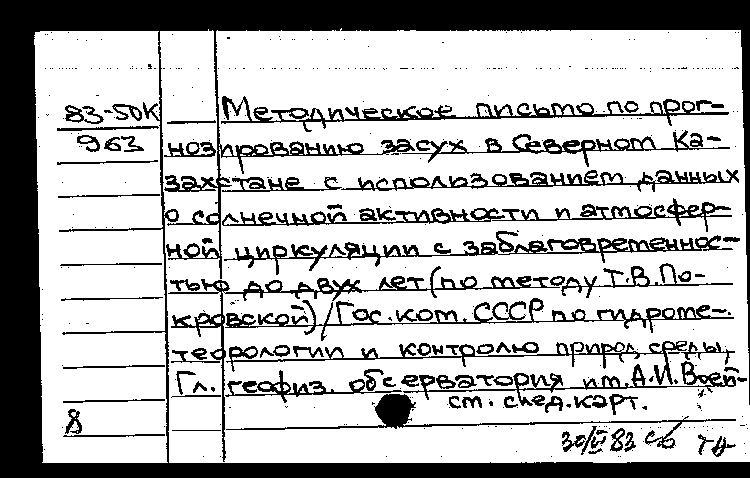 83-50К
963
Методическое письмо по прог-
нозированию засух в Северном Ка-
захстане с использованием данных
о солнечной активности и атмосфер-
ной циркуляции с заблаговременнос-
тью до двух лет (по методу Т.В.По-
кровской) / Гос. ком. СССР по гидроме-
теорологии и контролю природ. среды,
Гл. геофиз. обсерватория им. А.И. Воей-
см. след. карт.
8
30/VI 83